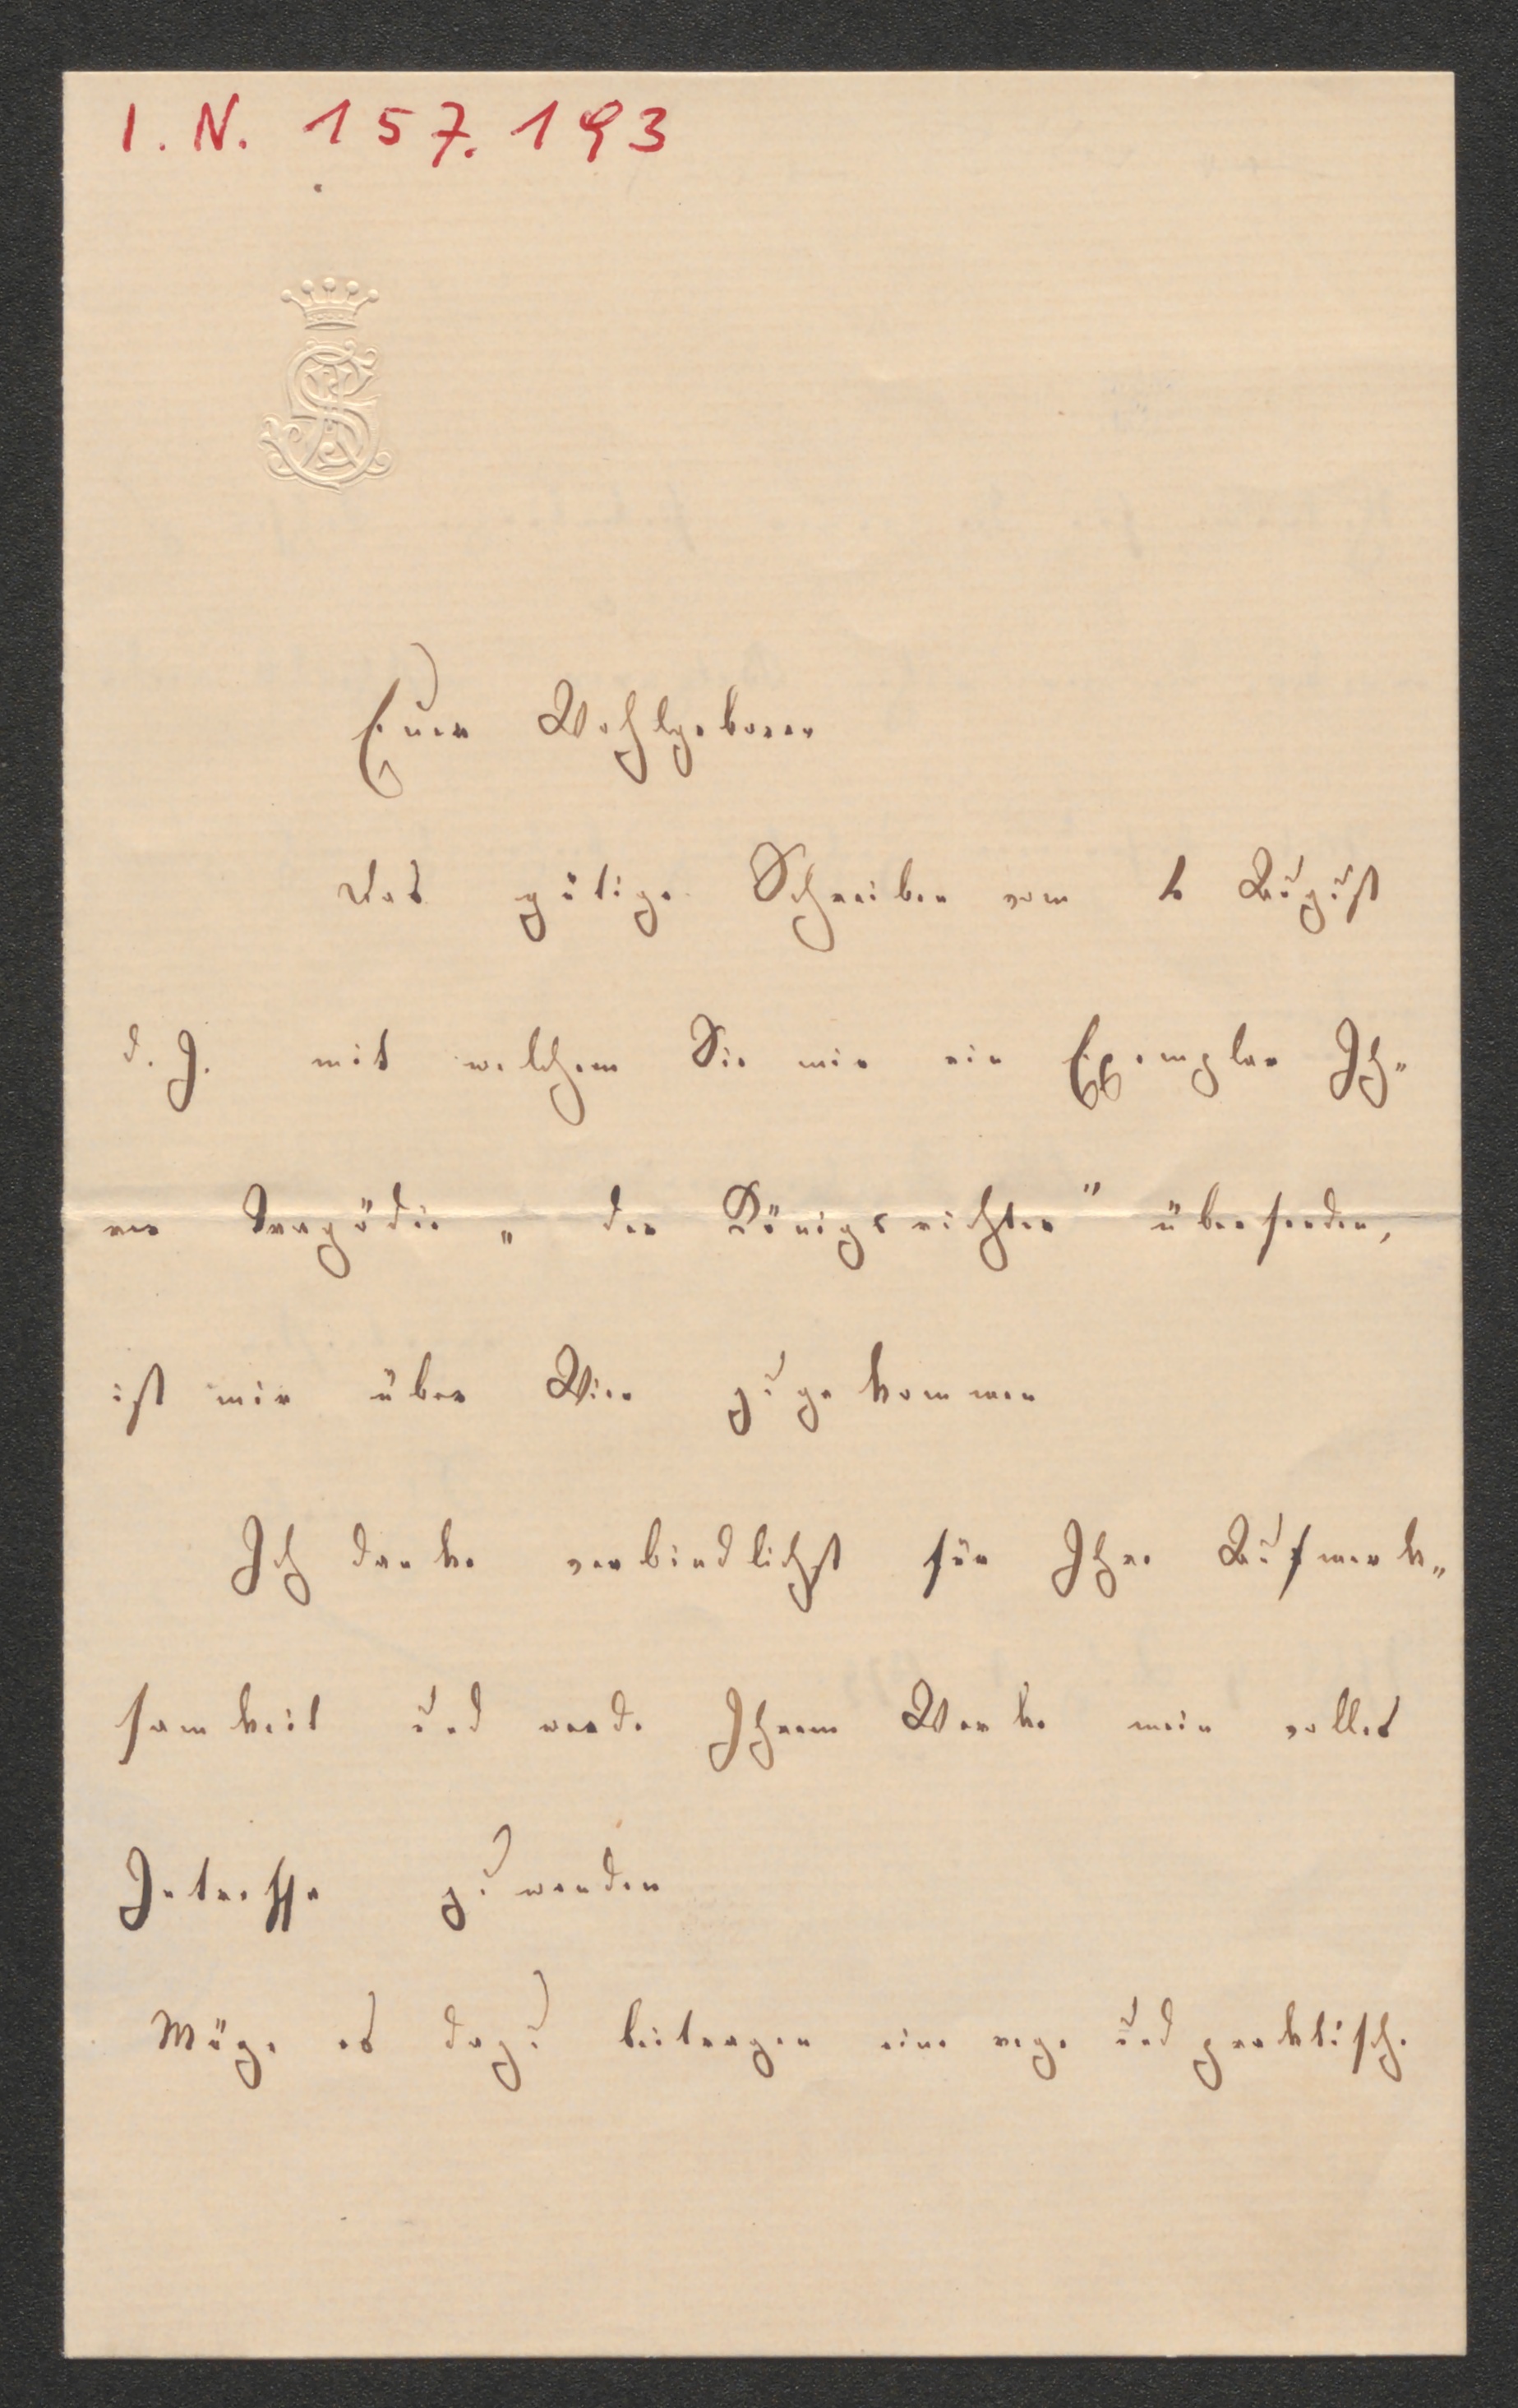 I. N. 157.193
Euer Wohlgeboren
Das gütige Schreiben vom August
d. J. mit welchem Sie mir ein Exemplar Ih„
rer Tragödie „der Königsrichter" übersenden,
ist mir über Wien zugekommen
Ich danke verbindlichst für Ihre Aufmerk„
samkeit und werde Ihrem Werke mein volles
Intresse zuwenden
Möge es dazu beitragen eine rege und praktische